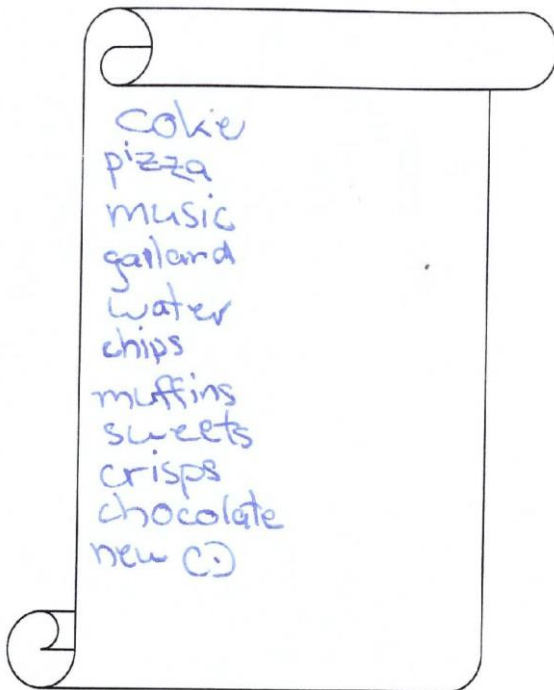 cokie
pizza
music
gailand
water
chips
muffins
sweets
crisps
chocolate
new